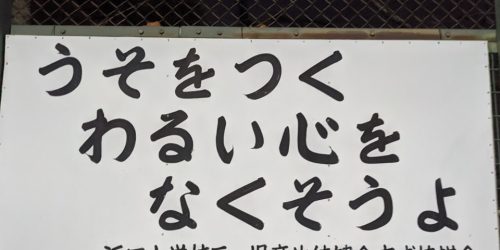 うそをつく
わるい心を
なくそうよ